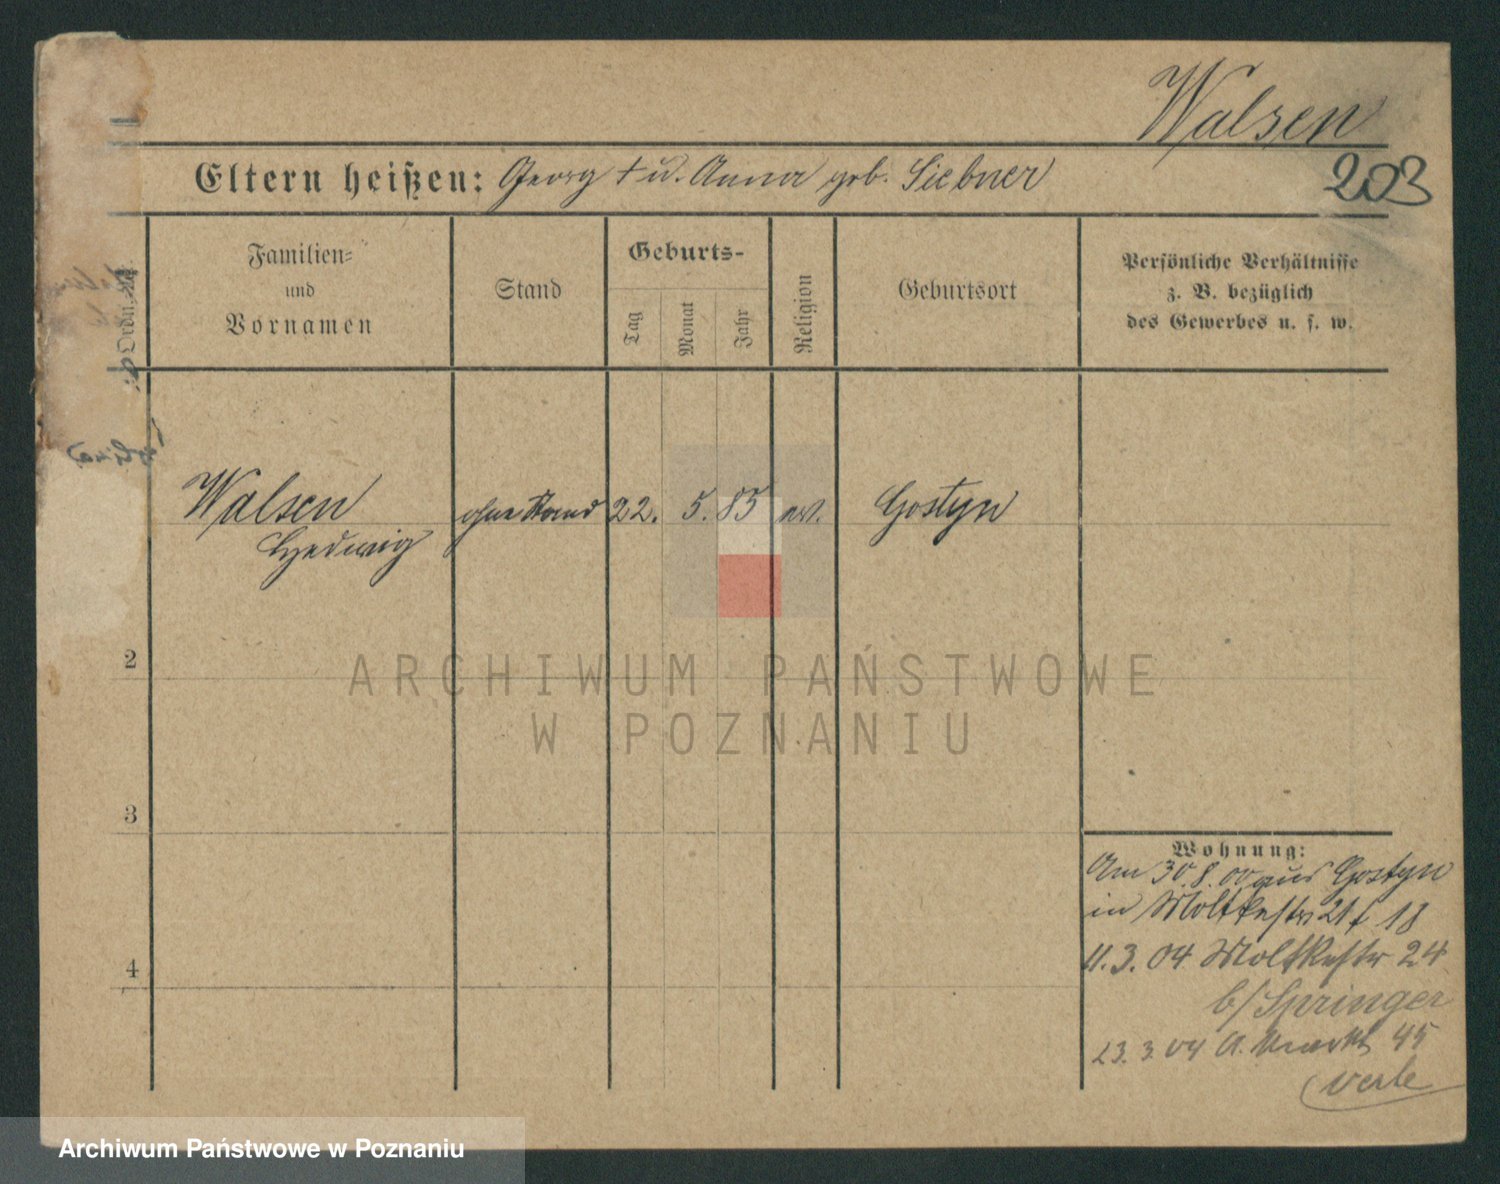 Walsen
203
Eltern heißen: Georg † u. Anna geb. Siebner
Ordn. №
Familien=
und
Vornamen
Stand
Geburts-
Tag
Monat
Jahr
Religion
Geburtsort
Persönliche Verhältnisse
z. B. bezüglich
des Gewerbes u. s. w.
Walsen
Hedwig
ohne Stand
22.
5.
85
ev.
Gostyn
2
3
4
Wohnung:
Am 30.8.00 aus Gostyn
in Moltkestr 21 18
11.3.04 Moltkestr 24
b/Springer
23.3.04 A. Markt 45
ARCHIWUM PAŃSTWOWE
W POZNANIU
Archiwum Państwowe w Poznaniu